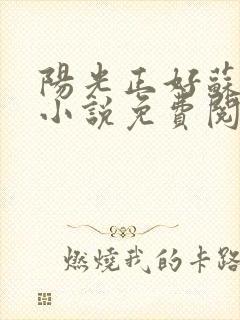 陽光正好蘇
小說免費閱
燃燒我的卡路